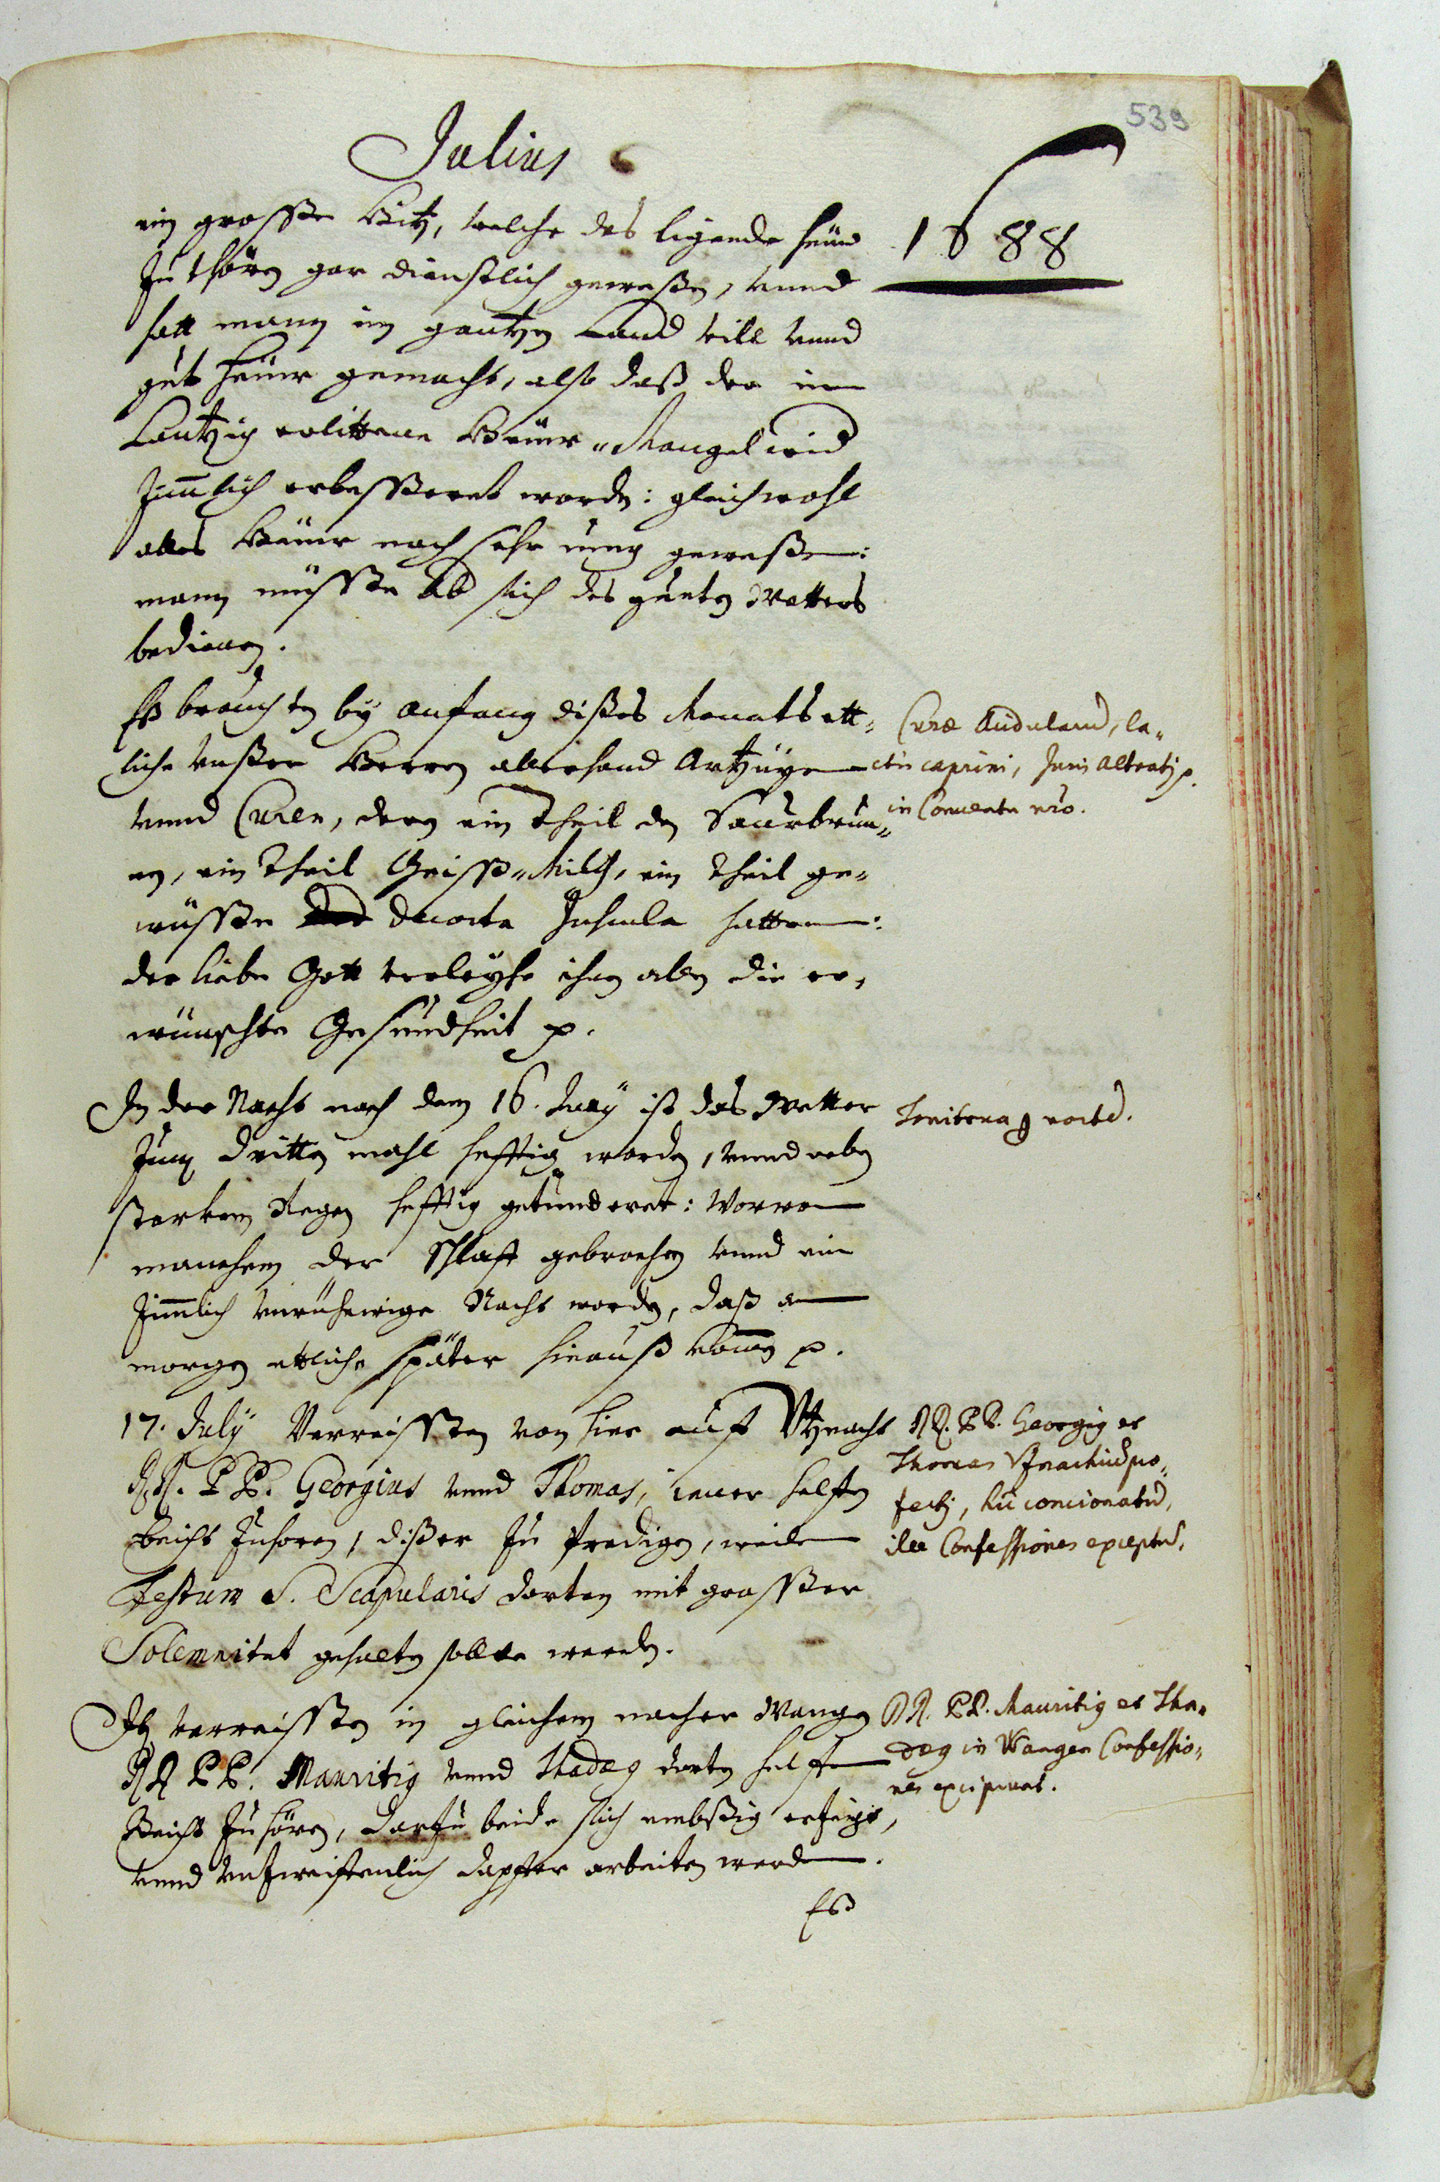 539
Julius
1688
ein grosse Hitz, welche das ligende heüw
zu thören gar dienstlich geweßen, vnnd
hatt mann im gantzen Land vill vnnd
gut heüw gemacht, also daß der im
erlittene Heüw-Mangel wid
zimlich erbesseret worden: gleichwohl
alles Heüw noch sehr geweßen:
mann müsste sich des guten Wetters
bedienen.
Eß brauchten by anfang dißes Monats ett-
liche vnßer Herren allerhand Artzüyen
vnnd Curen, deren ein theil den Saurbrun-
en, ein theil Geiss-Milch, ein theil ge-
wüsse hatten:
der liebe Gott verleyhe ihnen allen die er-
wünschte Gesundheit p.
Curæ Acidularum, la-
ctis caprini, Juris p.
in Conventu nro.
In der Nacht nach dem 16. July ist das Wetter
zum dritten mahl hefftig worden, vnnd neben
starkem Regen hefftig getunderet: Worvon
manchem der Schlaff gebrochen vnnd ein
zimmlich vnrühewige Nacht worden, daß am
morgen ettliche später hinauß kommen p.
Tonitrua noctu.
17. July Verreissten von hier auf Vtznacht
RR. PP. Georgius vnnd Thomas, iener helffen
beicht zuhören, dißer zu Predigen, weilen
Festum S. Scapularis dorten mit grosser
Solemnitet gehalten sollte werden.
RR. PP. Georgius et
Thomas Vznachium pro-
fecti, hic concionaturus,
ille Confessiones excepturus.
Jtem verreissten in gleichem nacher Wangen
RR PP. Mauritius vnnd Thadæus dorten helffen
Beicht zu hören, darzu beide sich embsig erzeigt,
vnnd vnzweiffenlich dapffer arbeiten werden.
RR. PP. Mauritius et Tha-
dæus in Wangen Confessio-
nes excipiunt.
Eß